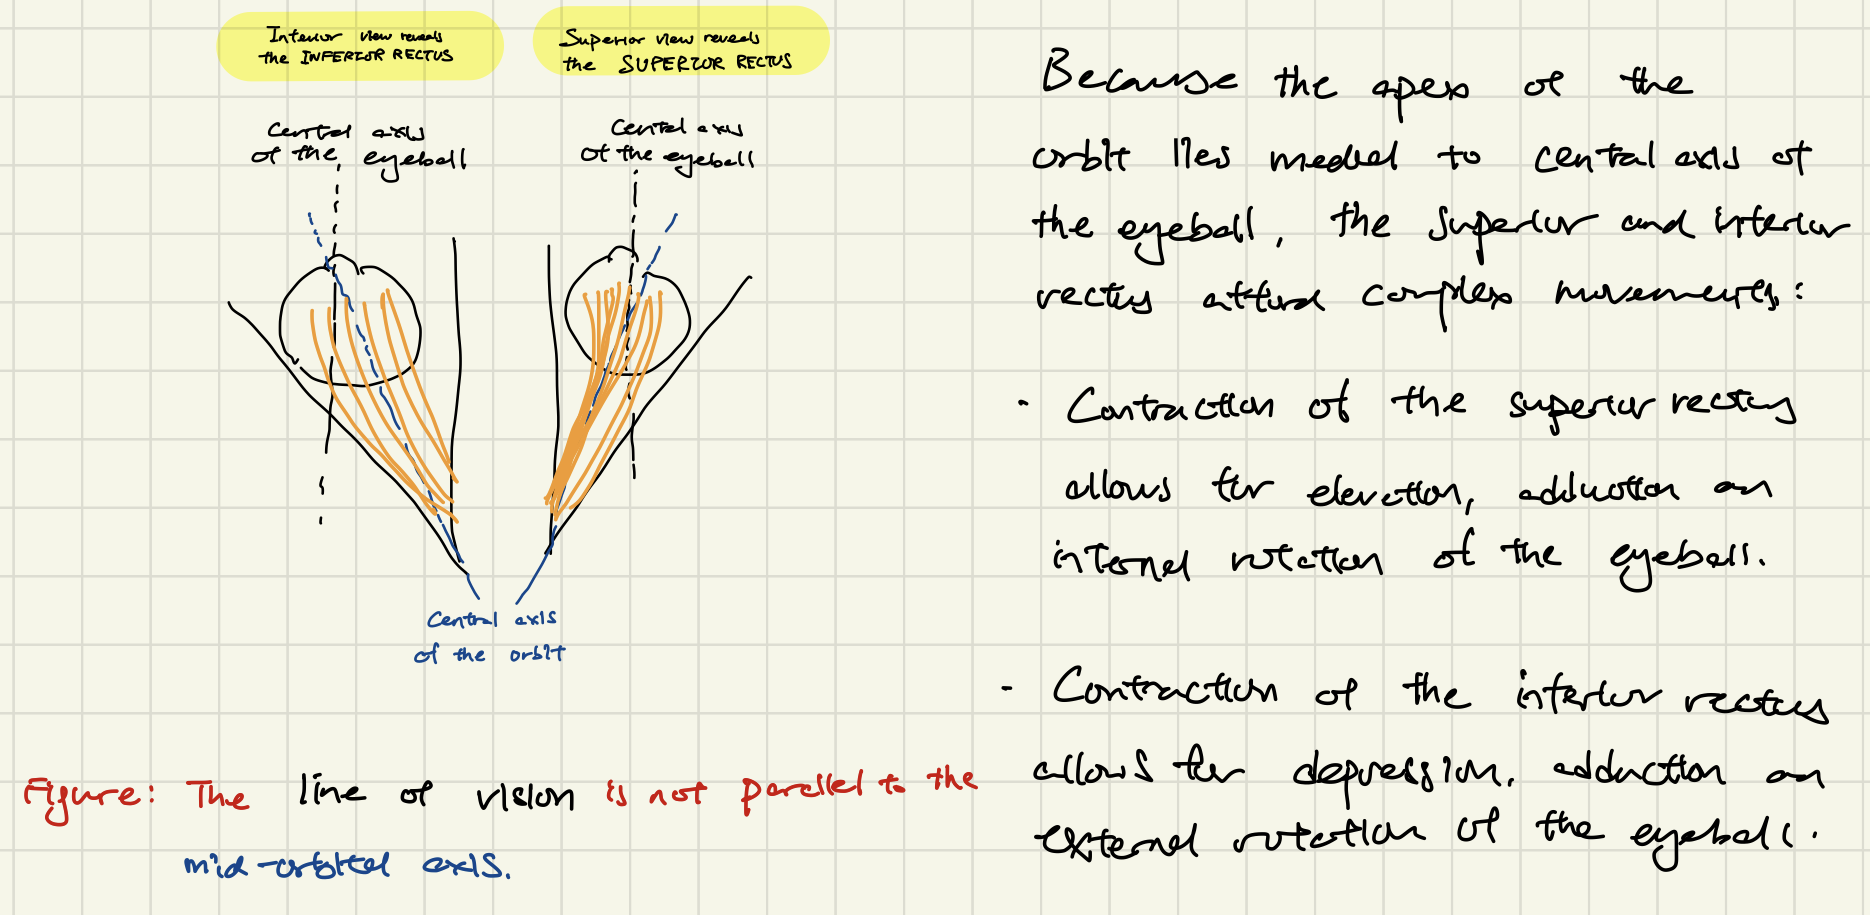 Inferior view reveals
the INFERIOR RECTUS
Superior view reveals
the SUPERIOR RECTUS
Central axis
of the eyeball
Central axis
of the eyeball
Central axis
of the orbit
Figure: The line of vision is not parallel to the
mid-orbital axis.
Because the apex of the
orbit lies medial to central axis of
the eyeball, the superior and inferior
rectus afford complex movements:
- Contraction of the superior rectus
allows for elevation, adduction an
internal rotation of the eyeball.
- Contraction of the inferior rectus
allows for depression, adduction an
external rotation of the eyeball.